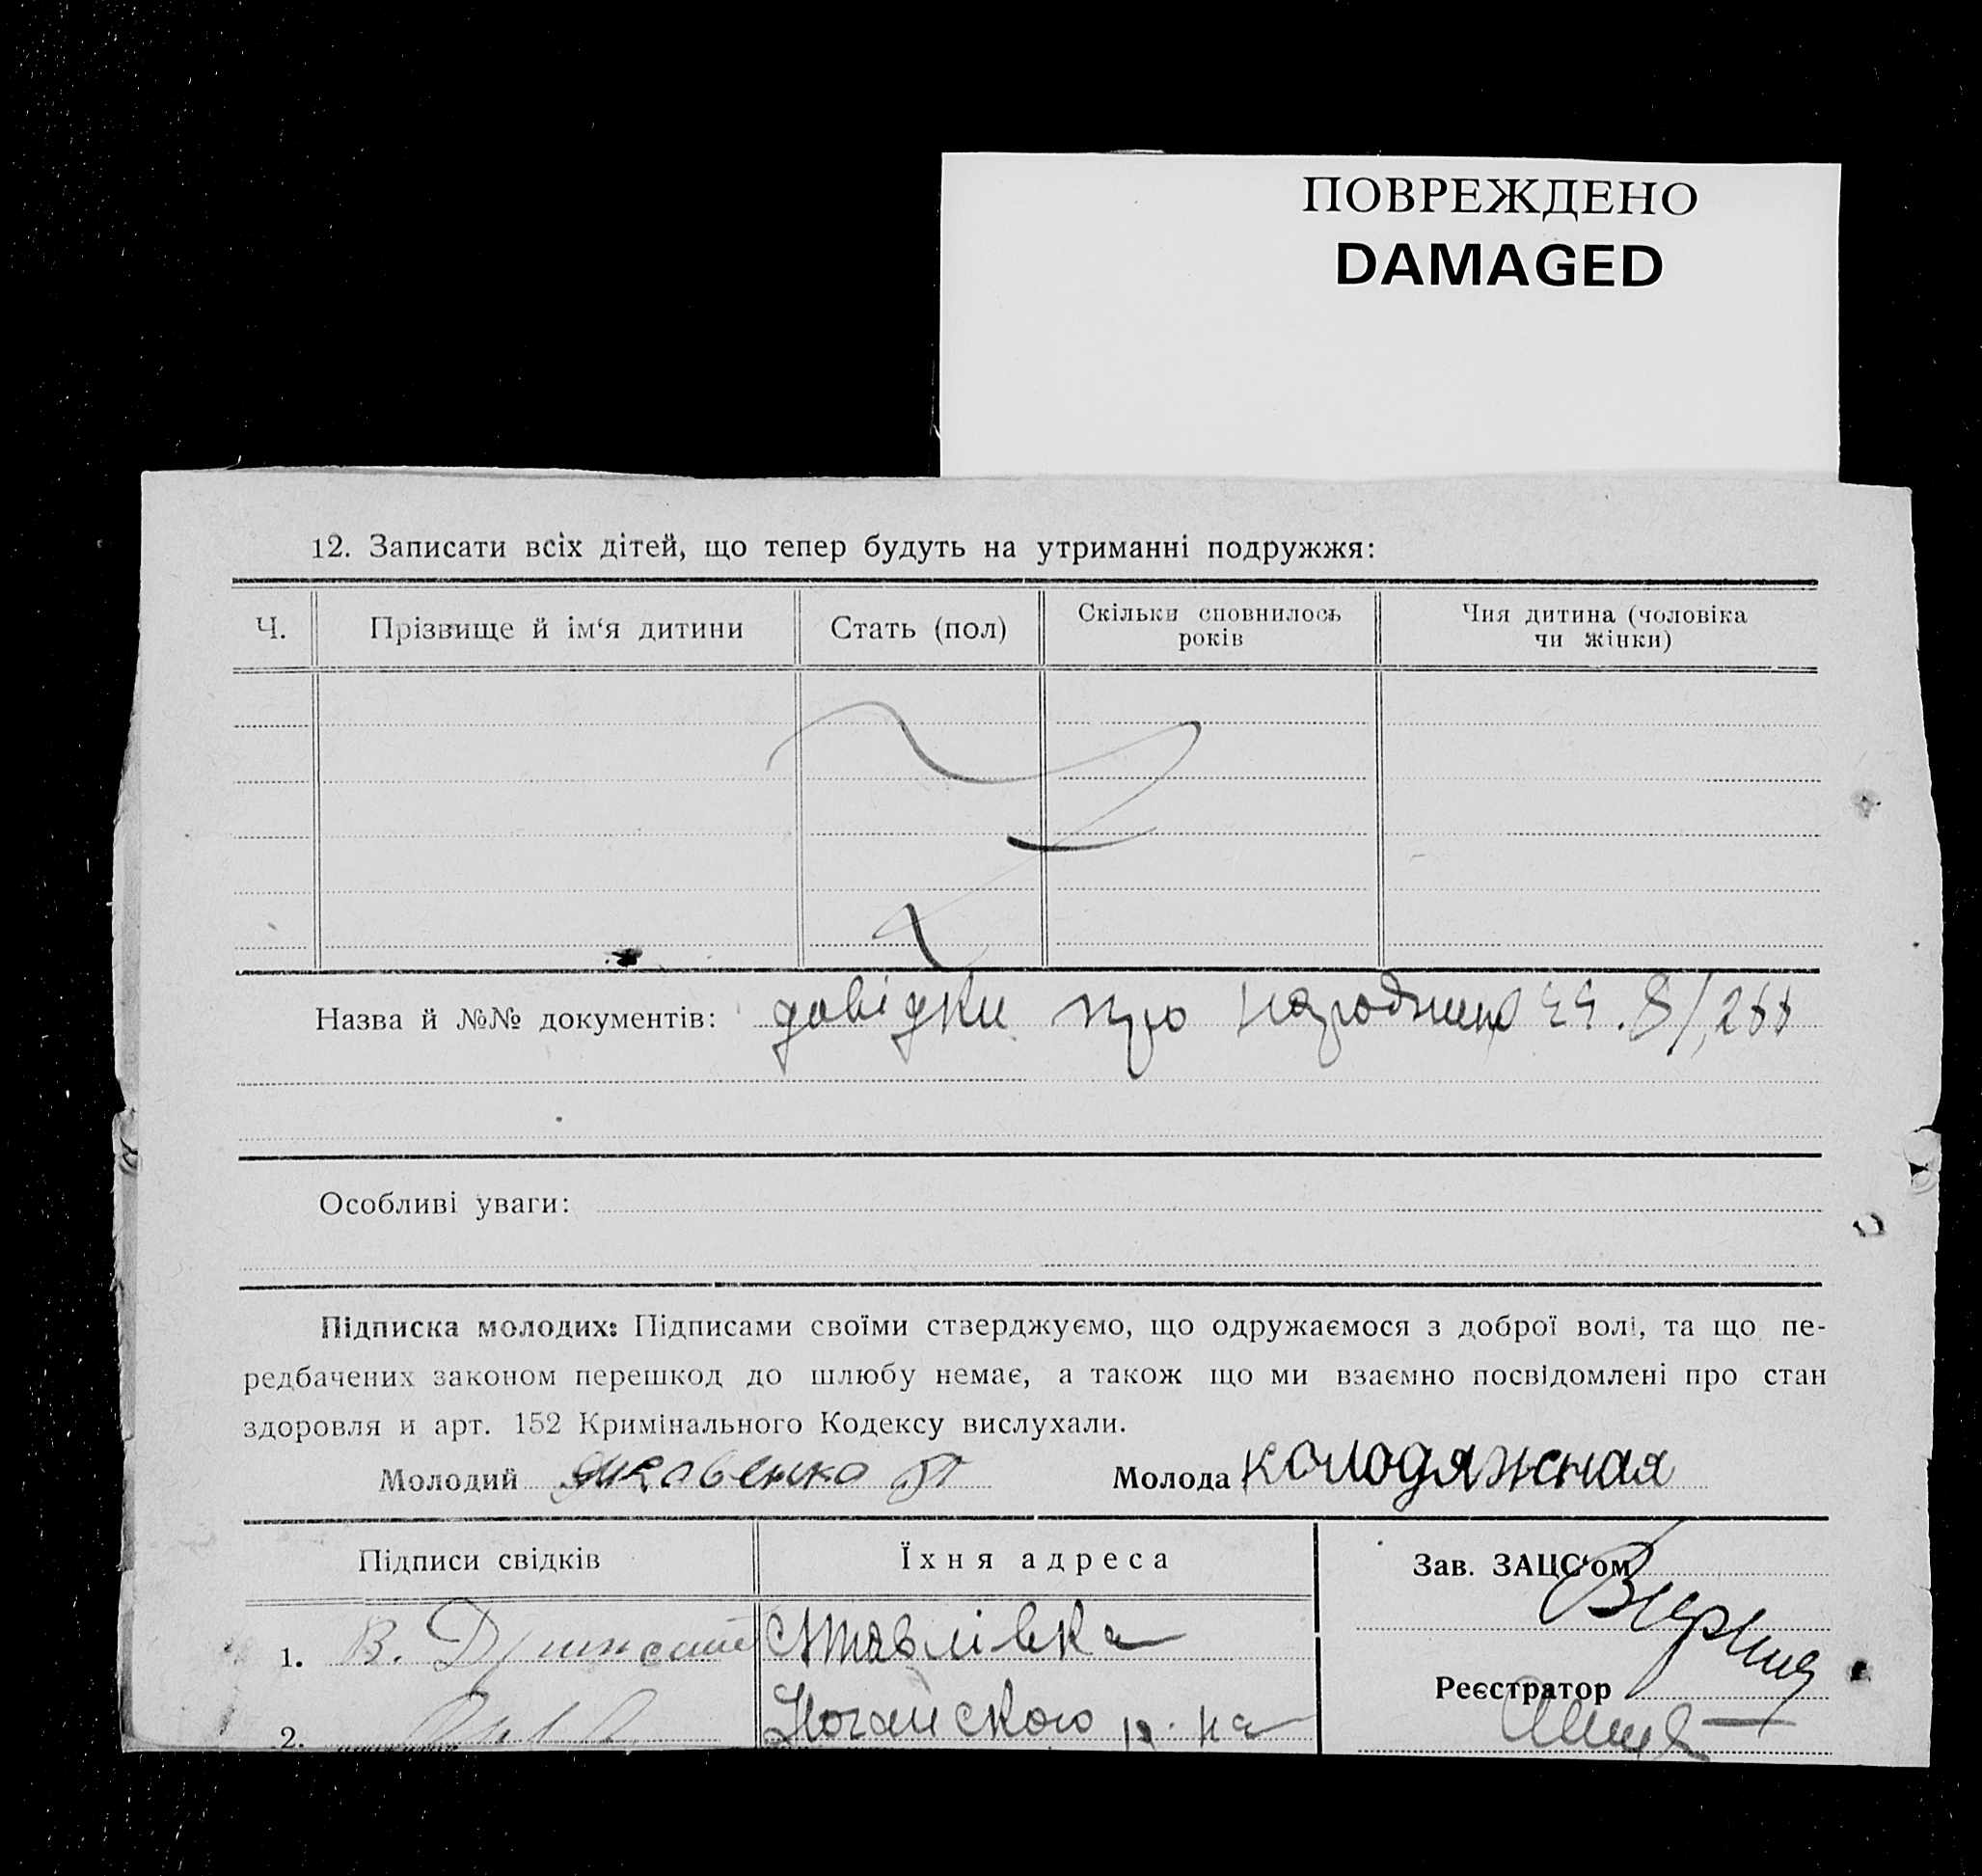 ПОВРЕЖДЕНО
DAMAGED
12. Записати всіх дітей, що тепер будуть на утриманні подружжя:
Ч.
Прізвище й ім‘я дитини
Стать (пол)
Скільки сповнилось
років
Чия дитина (чоловіка
чи жінки)
Назва й №№ документів: довідки про
Особливі уваги:
Підписка молодих: Підписами своїми стверджуємо, що одружаємося з доброї волі, та що пе-
редбачених законом перешкод до шлюбу немає, а також що ми взаємно посвідомлені про стан
здоровля и арт. 152 Кримінального Кодексу вислухали.
Молодий Яковенко Молода Колодяжная
Підписи свідків
Їхня адреса
Зав. ЗАЦС‘ом
1. В.
Ногайского р-на
Реєстратор
2.